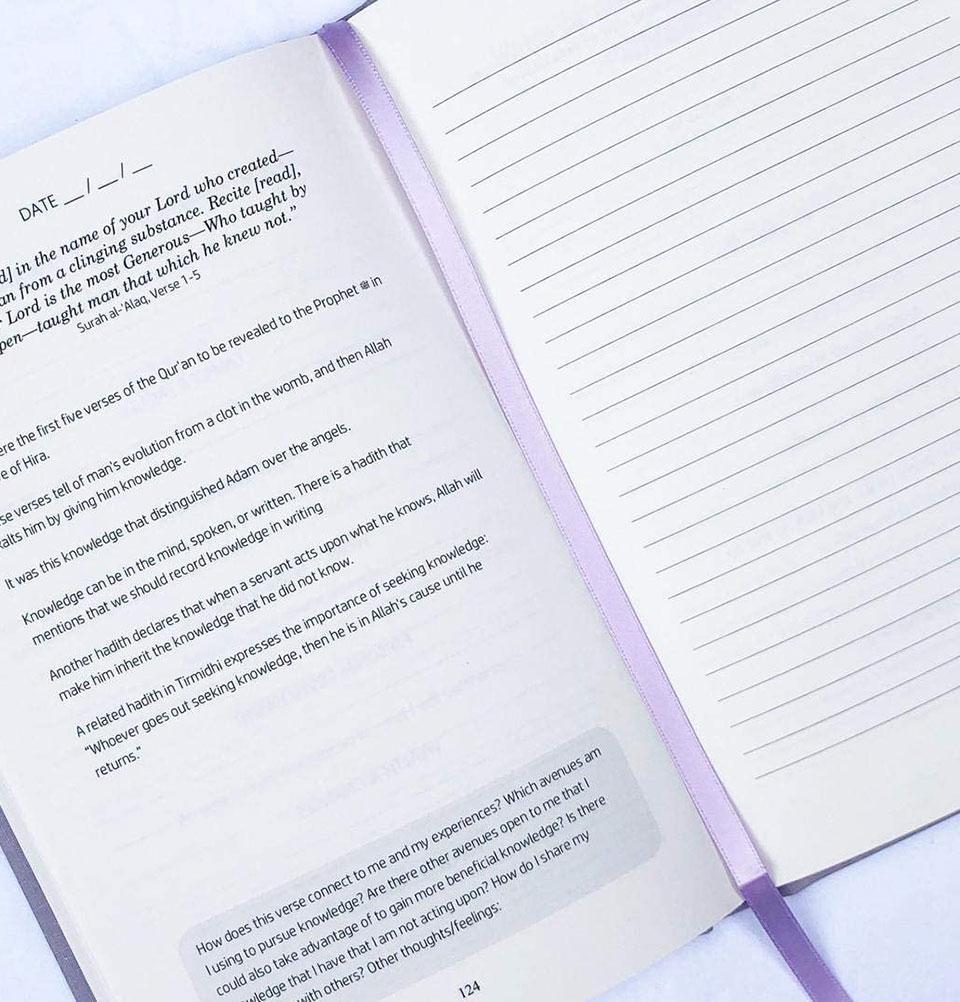 DATE __ / __ / __
d] in the name of your Lord who created—
an from a clinging substance. Recite [read],
Lord is the most Generous—Who taught by
pen—taught man that which he knew not.”
Surah al-‘Alaq, Verse 1-5
ere the first five verses of the Qur’an to be revealed to the Prophet ﷺ in
e of Hira.
se verses tell of man’s evolution from a clot in the womb, and then Allah
alts him by giving him knowledge.
It was this knowledge that distinguished Adam over the angels.
Knowledge can be in the mind, spoken, or written. There is a hadith that
mentions that we should record knowledge in writing
Another hadith declares that when a servant acts upon what he knows, Allah will
make him inherit the knowledge that he did not know.
A related hadith in Tirmidhi expresses the importance of seeking knowledge:
“Whoever goes out seeking knowledge, then he is in Allah’s cause until he
returns.”
How does this verse connect to me and my experiences? Which avenues am
I using to pursue knowledge? Are there other avenues open to me that I
could also take advantage of to gain more beneficial knowledge? Is there
wledge that I have that I am not acting upon? How do I share my
with others? Other thoughts/feelings:
124